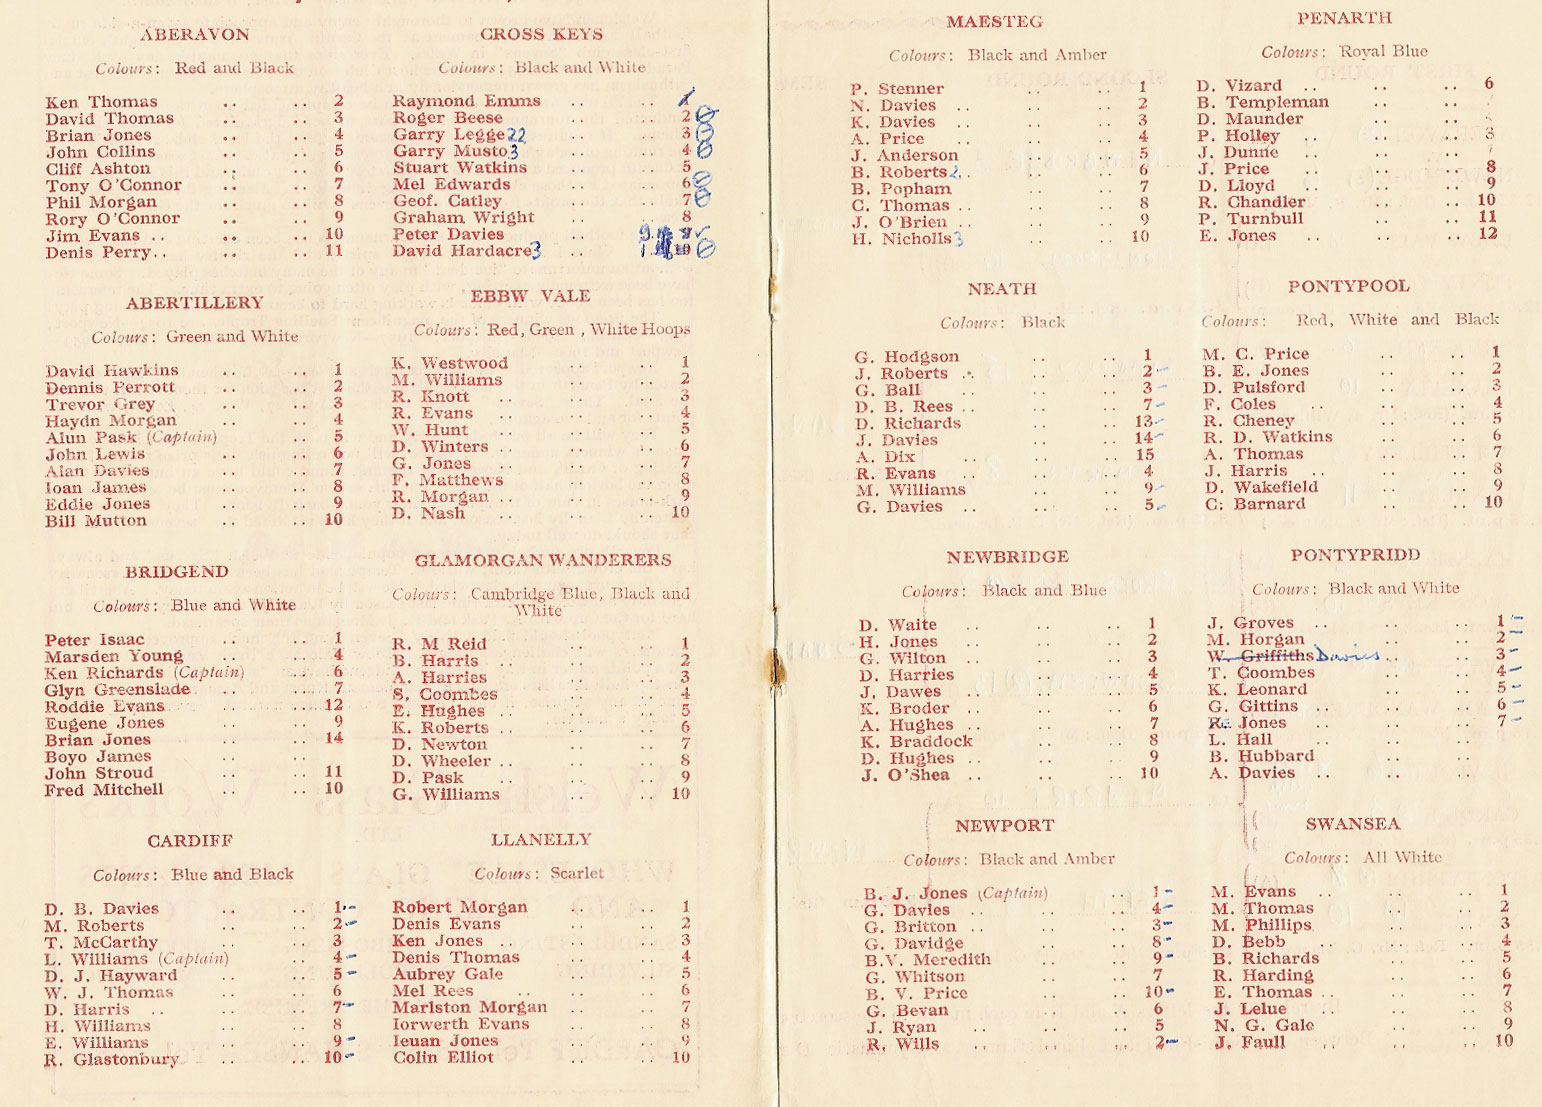 ABERAVON
Colours: Red and Black
Ken Thomas .. .. 2
David Thomas .. .. 3
Brian Jones .. .. 4
John Collins .. .. 5
Cliff Ashton .. .. 6
Tony O'Connor .. .. 7
Phil Morgan .. .. 8
Rory O'Connor .. .. 9
Jim Evans .. .. .. 10
Denis Perry.. .. .. 11
ABERTILLERY
Colours: Green and White
David Hawkins .. .. 1
Dennis Perrott .. .. 2
Trevor Grey .. .. 3
Haydn Morgan .. .. 4
Alun Pask (Captain) .. 5
John Lewis .. .. 6
Alan Davies .. .. 7
Ioan James .. .. 8
Eddie Jones .. .. 9
Bill Mutton .. .. 10
BRIDGEND
Colours: Blue and White
Peter Isaac .. .. 1
Marsden Young .. .. 4
Ken Richards (Captain) .. 6
Glyn Greenslade .. .. 7
Roddie Evans .. .. 12
Eugene Jones .. .. 9
Brian Jones .. .. 14
Boyo James .. ..
John Stroud .. .. 11
Fred Mitchell .. .. 10
CARDIFF
Colours: Blue and Black
D. B. Davies .. .. 1-
M. Roberts .. .. 2-
T. McCarthy .. .. 3
L. Williams (Captain) .. 4-
D. J. Hayward .. .. 5-
W. J. Thomas .. .. 6
D. Harris .. .. .. 7-
H. Williams .. .. 8
E. Williams .. .. 9-
R. Glastonbury .. .. 10-
CROSS KEYS
Colours: Black and White
Raymond Emms .. .. 1
Roger Beese .. .. 2
Garry Legge 22 .. 3
Garry Musto 3 .. 4
Stuart Watkins .. .. 5
Mel Edwards .. .. 6
Geof. Catley .. .. 7
Graham Wright .. .. 8
Peter Davies .. 9
David Hardacre 3 .. 10
EBBW VALE
Colours: Red, Green , White Hoops
K. Westwood .. .. 1
M. Williams .. .. 2
R. Knott .. .. .. 3
R. Evans .. .. .. 4
W. Hunt .. .. .. 5
D. Winters .. .. .. 6
G. Jones .. .. .. 7
F. Matthews .. .. 8
R. Morgan .. .. .. 9
D. Nash .. .. .. 10
GLAMORGAN WANDERERS
Colours: Cambridge Blue, Black and
White
R. M Reid .. .. 1
B. Harris .. .. .. 2
A. Harries .. .. .. 3
S. Coombes .. .. 4
E. Hughes .. .. .. 5
K. Roberts .. .. .. 6
D. Newton .. .. 7
D. Wheeler .. .. .. 8
D. Pask .. .. .. 9
G. Williams .. .. 10
LLANELLY
Colours: Scarlet
Robert Morgan .. .. 1
Denis Evans .. .. 2
Ken Jones .. .. .. 3
Denis Thomas .. .. 4
Aubrey Gale .. .. 5
Mel Rees .. .. .. 6
Marlston Morgan .. .. 7
Iorwerth Evans .. .. 8
Ieuan Jones .. .. 9
Colin Elliot .. .. 10
MAESTEG
Colours: Black and Amber
P. Stenner .. .. 1
N. Davies .. .. .. 2
K. Davies .. .. .. 3
A. Price .. .. .. 4
J. Anderson .. .. 5
B. Roberts 2 .. .. 6
B. Popham .. .. 7
C. Thomas .. .. .. 8
J. O'Brien .. .. .. 9
H. Nicholls 3 .. .. 10
NEATH
Colours: Black
G. Hodgson .. .. 1
J. Roberts .. .. .. 2-
G. Ball .. .. .. 3-
D. B. Rees .. .. .. 7-
D. Richards .. .. 13-
J. Davies .. .. 14-
A. Dix .. .. .. 15
R. Evans .. .. .. 4
M. Williams .. .. 9-
G. Davies .. .. .. 5-
NEWBRIDGE
Colours: Black and Blue
D. Waite .. .. .. 1
H. Jones .. .. .. 2
G. Wilton .. .. .. 3
D. Harries .. .. 4
J. Dawes .. .. .. 5
K. Broder .. .. .. 6
A. Hughes .. .. .. 7
K. Braddock .. .. 8
D. Hughes .. .. .. 9
J. O'Shea .. .. .. 10
NEWPORT
Colours: Black and Amber
B. J. Jones (Captain) .. 1-
G. Davies .. .. .. 4-
G. Britton .. .. .. 3-
G. Davidge .. .. 8-
B.V. Meredith .. .. 9-
G. Whitson .. .. 7
B. V. Price .. .. 10-
G. Bevan .. .. 6
J. Ryan .. .. .. 5
R. Wills .. .. .. 2-
PENARTH
Colours: Royal Blue
D. Vizard .. .. .. 6
B. Templeman .. ..
D. Maunder .. ..
P. Holley .. .. 3
J. Dunne .. ..
J. Price .. .. .. 8
D. Lloyd .. .. .. 9
R. Chandler .. .. 10
P. Turnbull .. .. 11
E. Jones .. .. .. 12
PONTYPOOL
Colours: Red, White and Black
M. C. Price .. .. 1
B. E. Jones .. .. 2
D. Pulsford .. .. 3
F. Coles .. .. 4
R. Cheney .. .. 5
R. D. Watkins .. .. 6
A. Thomas .. .. 7
J. Harris .. .. .. 8
D. Wakefield .. .. 9
C. Barnard .. .. 10
PONTYPRIDD
Colours: Black and White
J. Groves .. .. .. 1-
M. Horgan .. .. 2-
W. Griffiths Davies .. .. 3-
T. Coombes .. .. 4-
K. Leonard .. .. 5-
G. Gittins .. .. .. 6-
R. Jones .. .. 7-
L. Hall .. .. ..
B. Hubbard .. ..
A. Davies .. .. ..
SWANSEA
Colours: All White
M. Evans .. .. .. 1
M. Thomas .. .. 2
M. Phillips .. .. 3
D. Bebb .. .. .. 4
B. Richards .. .. 5
R. Harding .. .. 6
E. Thomas .. .. .. 7
J. Lelue .. .. .. 8
N. G. Gale .. .. 9
J. Faull .. .. .. 10